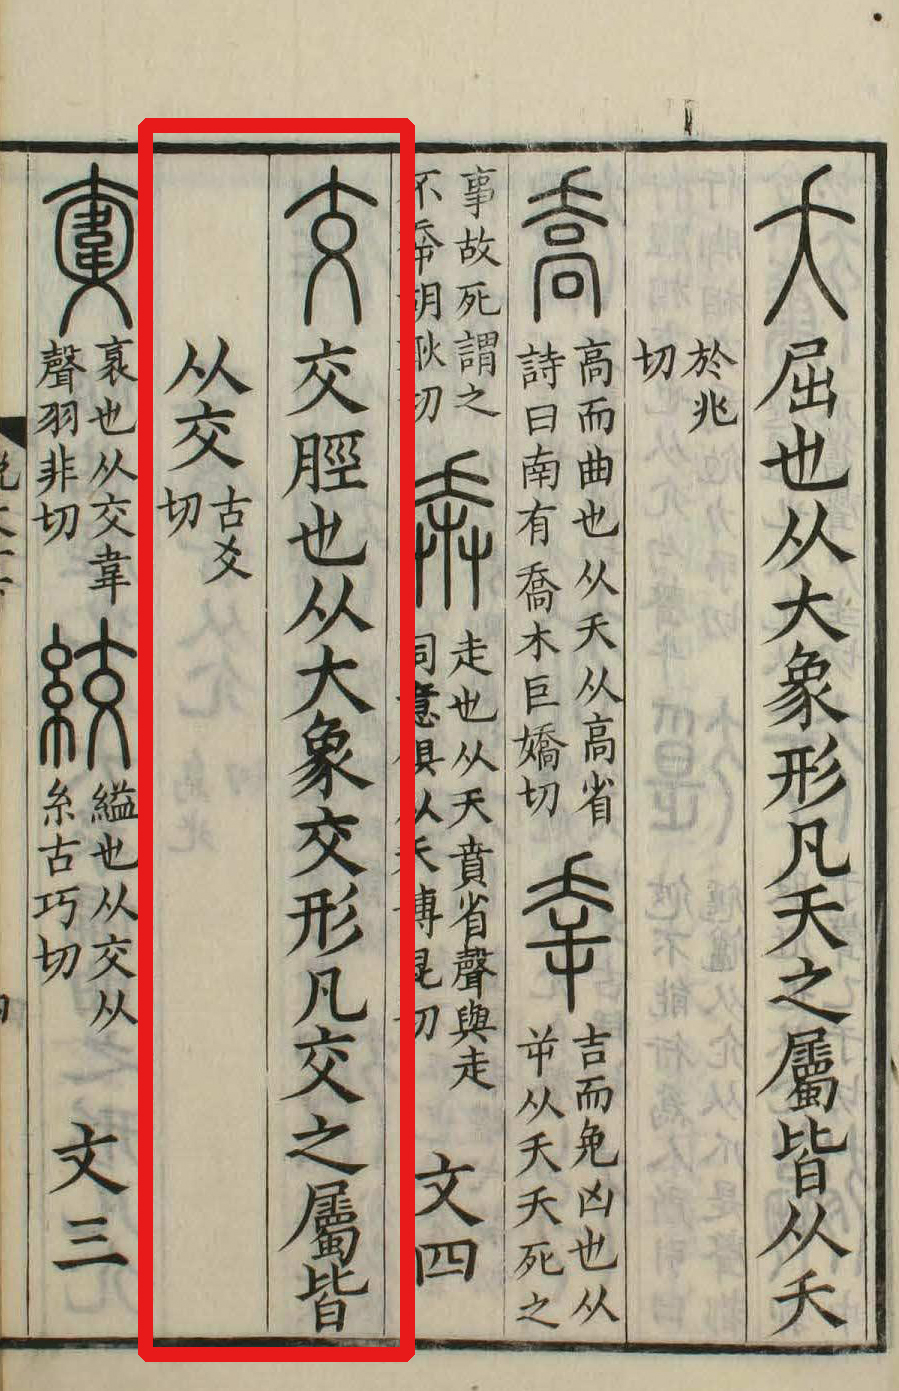 夭屈也从大象形凡夭之屬皆从夭
於兆切
喬高而曲也从夭从高省詩曰南有喬木巨嬌切㚔吉而免凶也从屰从夭夭死之
事故死謂之不㚔胡耿切奔走也从夭賁省聲與走同意俱从夭博昆切 文四
交交脛也从大象交形凡交之屬皆
从交古爻切
衺也从交韋聲羽非切絞縊也从交从糸古巧切 文三